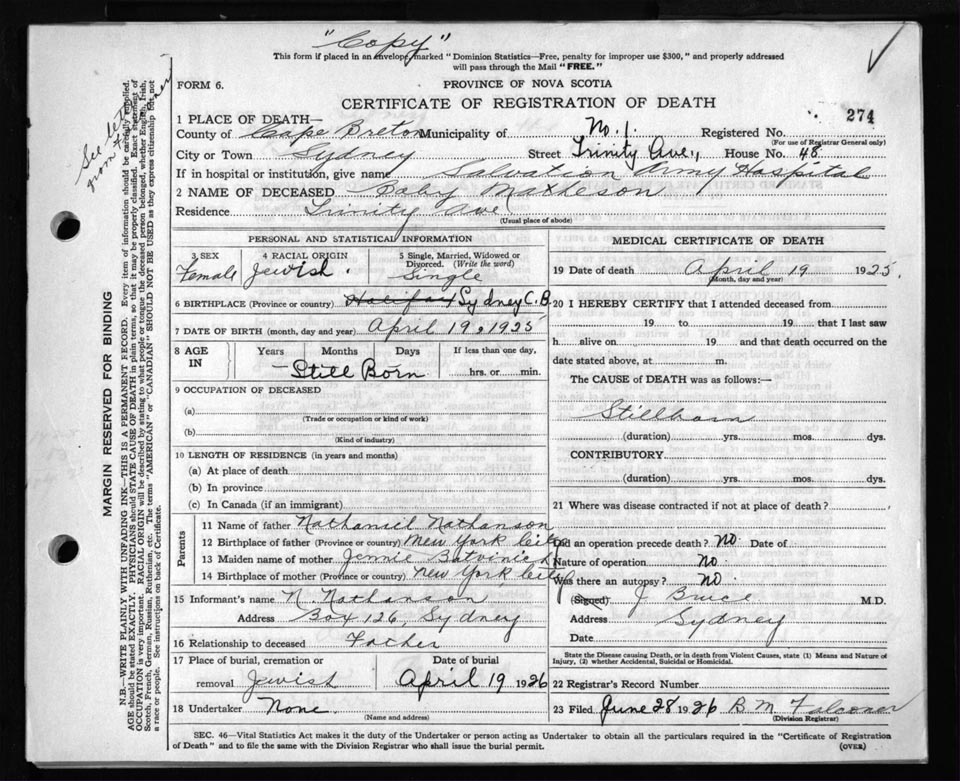 "Copy"
This form if placed in an envelope, marked "Dominion Statistics—Free, penalty for improper use $300," and properly addressed
will pass through the Mail "FREE."
FORM 6.
PROVINCE OF NOVA SCOTIA
CERTIFICATE OF REGISTRATION OF DEATH
274
1 PLACE OF DEATH—
County of Cape Breton Municipality of No. 1. Registered No.
(For use of Registrar General only)
City or Town Sydney Street Trinity Ave., House No. 48
If in hospital or institution, give name Salvation Army Hospital
2 NAME OF DECEASED Baby
Residence Trinity Ave
(Usual place of abode)
PERSONAL AND STATISTICAL INFORMATION
3 SEX Female
4 RACIAL ORIGIN Jewish
5 Single, Married, Widowed or Divorced. (Write the word) Single
6 BIRTHPLACE (Province or country) Halifax Sydney C.B.
7 DATE OF BIRTH (month, day and year) April 19, 1925
8 AGE IN Years Months Days If less than one day,
Still Born hrs. or min.
9 OCCUPATION OF DECEASED
(a)
(Trade or occupation or kind of work)
(b)
(Kind of industry)
10 LENGTH OF RESIDENCE (in years and months)
(a) At place of death
(b) In province
(c) In Canada (if an immigrant)
Parents
11 Name of father Nathaniel Nathanson
12 Birthplace of father (Province or country) New York City
13 Maiden name of mother Jennie
14 Birthplace of mother (Province or country) New York City
15 Informant's name N. Nathanson
Address Box 126, Sydney
16 Relationship to deceased Father
17 Place of burial, cremation or removal Jewish
Date of burial April 19 1926
18 Undertaker None
(Name and address)
MEDICAL CERTIFICATE OF DEATH
19 Date of death April 19 1925.
(Month, day and year)
20 I HEREBY CERTIFY that I attended deceased from
19 to 19 that I last saw
h alive on 19 and that death occurred on the
date stated above, at m.
The CAUSE of DEATH was as follows:—
Stillborn
(duration) yrs. mos. dys.
CONTRIBUTORY
(duration) yrs. mos. dys.
21 Where was disease contracted if not at place of death?
Did an operation precede death? no Date of
Nature of operation no
Was there an autopsy? no
(Signed) J Bruce M.D.
Address Sydney
Date
State the Disease causing Death, or in death from Violent Causes, state (1) Means and Nature of
Injury, (2) whether Accidental, Suicidal or Homicidal.
22 Registrar's Record Number
23 Filed June 28 1926 B. M. Falconer
(Division Registrar)
SEC. 46—Vital Statistics Act makes it the duty of the Undertaker or person acting as Undertaker to obtain all the particulars required in the "Certificate of Registration
of Death" and to file the same with the Division Registrar who shall issue the burial permit.
(OVER)
MARGIN RESERVED FOR BINDING
N.B.—WRITE PLAINLY WITH UNFADING INK—THIS IS A PERMANENT RECORD. Every item of information should be carefully supplied.
AGE should be stated EXACTLY. PHYSICIANS should STATE CAUSE OF DEATH in plain terms, so that it may be properly classified. Exact statement of
OCCUPATION is very important. RACIAL ORIGIN will be described by stating to what people or tongue the deceased person belonged, whether English, Irish,
Scotch, French, German, Russian, Ruthenian, etc. The terms "AMERICAN" or "CANADIAN" SHOULD NOT BE USED as they express citizenship but not
a race or people. See instructions on back of Certificate.
See
from